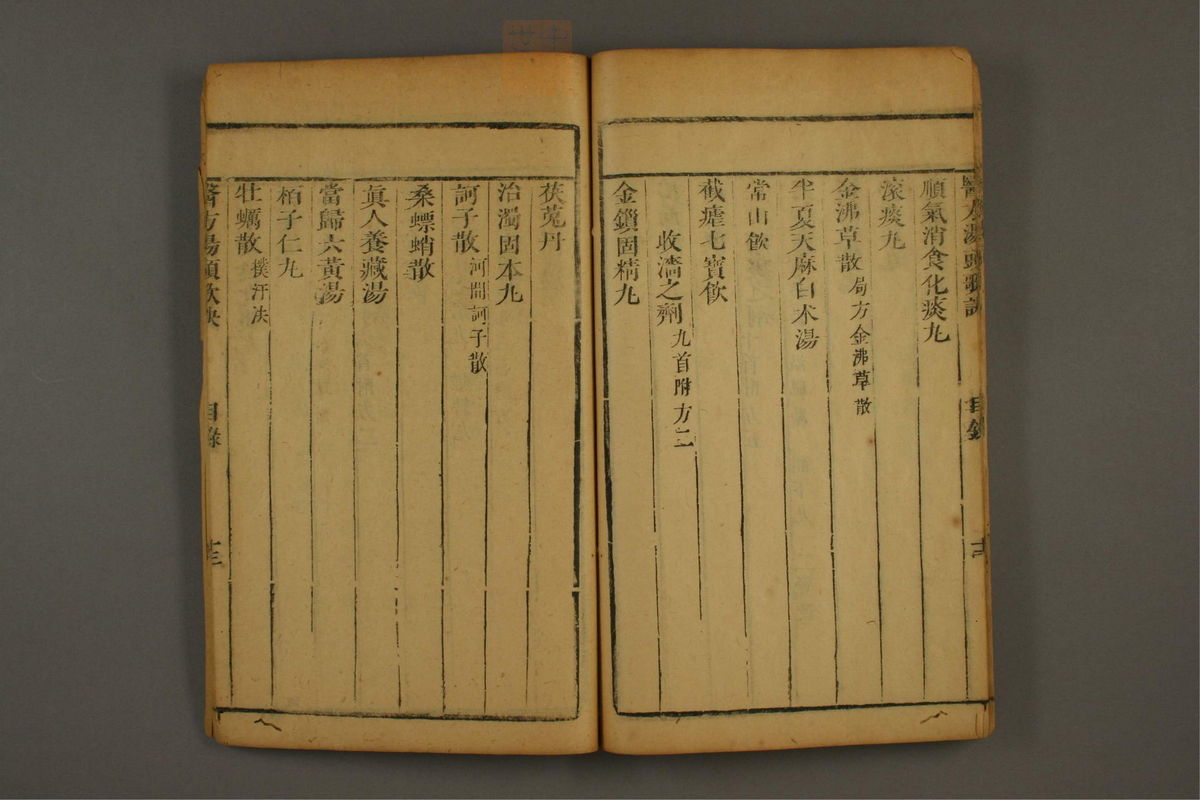 醫方湯頭歌訣 目錄 十二
順氣消食化痰丸
滾痰丸
金沸草散 局方金沸草散
半夏天麻白朮湯
常山飲
截瘧七寶飲
收濇之劑 九首附方二
金鎖固精丸
茯菟丹
治濁固本丸
訶子散 河間訶子散
桑螵蛸散
眞人養藏湯
當歸六黃湯
栢子仁丸
牡蠣散 撲汗法
醫方湯頭歌訣 目錄 十三